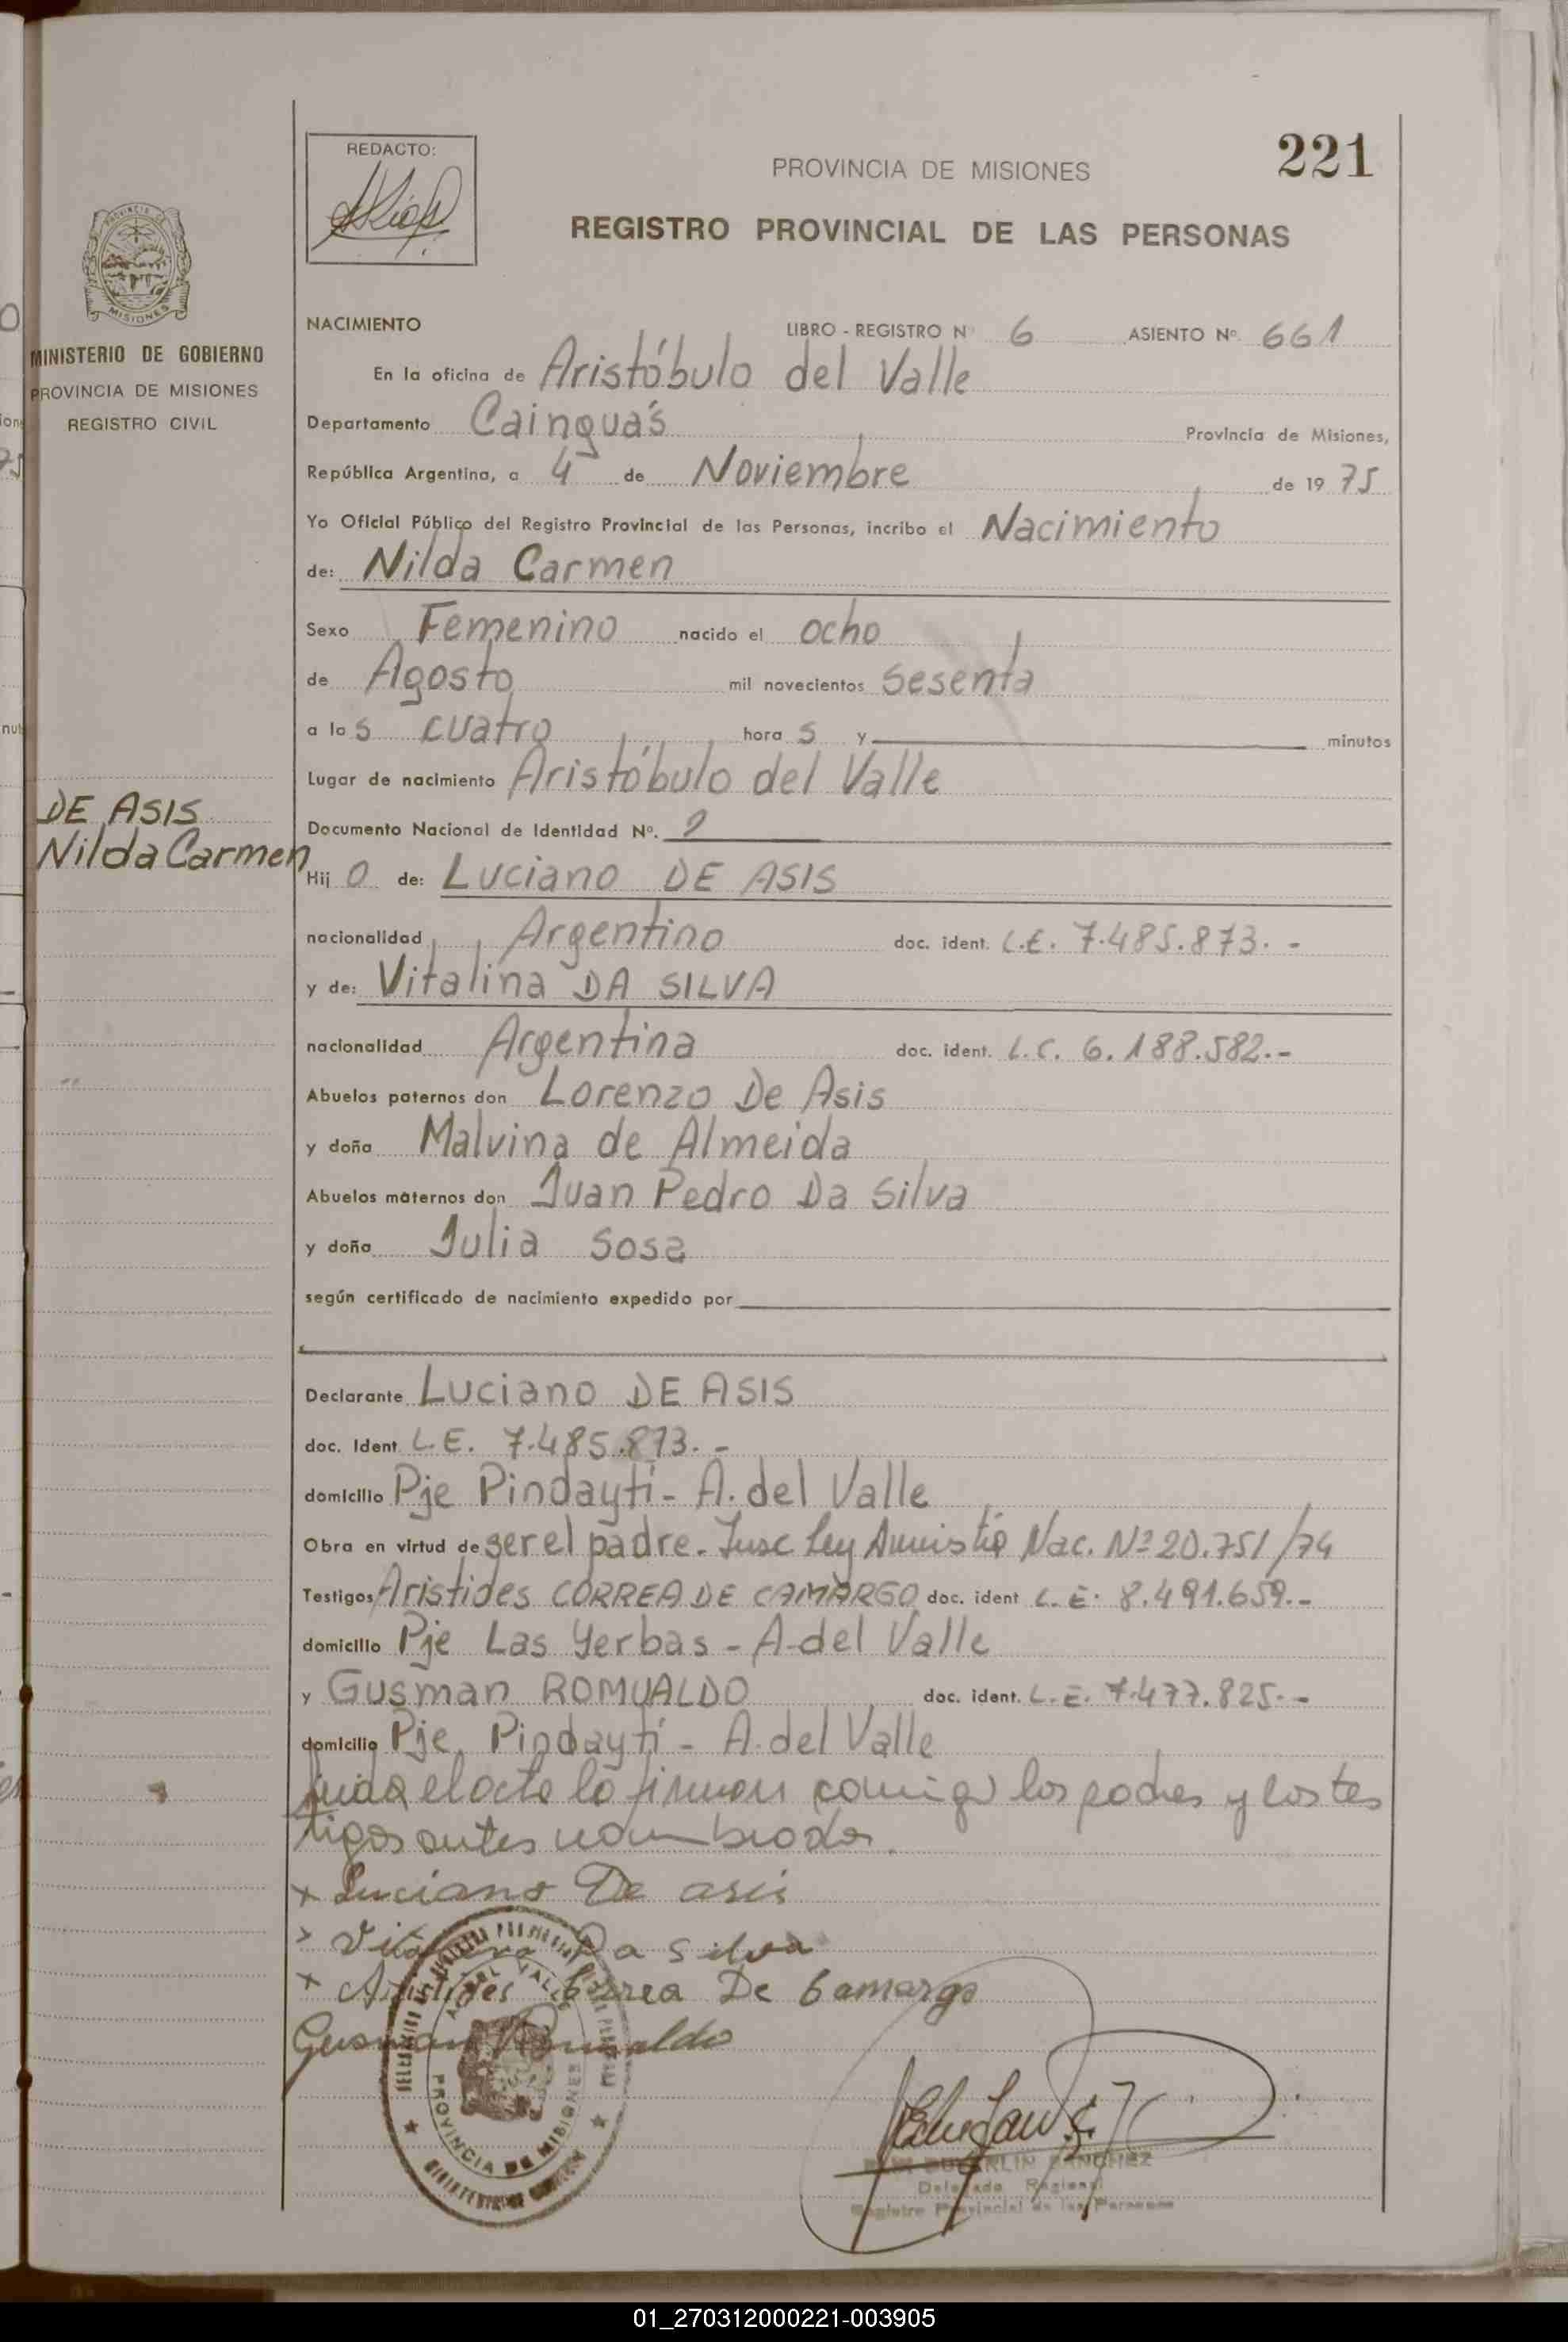 221
REDACTO:
PROVINCIA DE MISIONES
REGISTRO PROVINCIAL DE LAS PERSONAS
MISIONES
MINISTERIO DE GOBIERNO
PROVINCIA DE MISIONES
REGISTRO CIVIL
NACIMIENTO LIBRO - REGISTRO N° 6 ASIENTO Nº. 661
En la oficina de Aristóbulo del Valle
Departamento Cainguás Provincia de Misiones,
República Argentina, a 4 de Noviembre de 19 75
Yo Oficial Público del Registro Provincial de las Personas, incribo el Nacimiento
de: Nilda Carmen
Sexo Femenino nacido el ocho
de Agosto mil novecientos sesenta
a las cuatro horas y minutos
Lugar de nacimiento Aristóbulo del Valle
DE ASIS
Nilda Carmen
Documento Nacional de Identidad Nº.
Hijo de: Luciano DE ASIS
nacionalidad Argentino doc. ident. L.E. 7.485.873.-
y de: Vitalina DA SILVA
nacionalidad Argentina doc. ident. L.C. 6.188.582.-
Abuelos paternos don Lorenzo De Asis
y doña Malvina de Almeida
Abuelos maternos don Juan Pedro Da Silva
y doña Julia Sosa
según certificado de nacimiento expedido por
Declarante Luciano DE ASIS
doc. Ident. L.E. 7.485.873.-
domicilio Pje Pindaytí - A. del Valle
Obra en virtud de ser el padre. Insc Ley Amnistía Nac. Nº 20.751/74
Testigos Aristides CORREA DE CAMARGO doc. ident L.E. 8.491.659.-
domicilio Pje Las Yerbas - A. del Valle
y Gusman ROMUALDO doc. ident. L.E. 7.477.825.-
domicilio Pje Pindaytí - A. del Valle
el acta la firman conmigo los padres y los tes
tigos antes nombrados.
x Luciano De asis
x Vitalina Da Silva
x Aristides Correa De Camargo
Gusman Romualdo
A. DEL VALLE
PROVINCIA DE MISIONES
SANCHEZ
Delegado Regional
Registro Provincial de las Personas
01_270312000221-003905